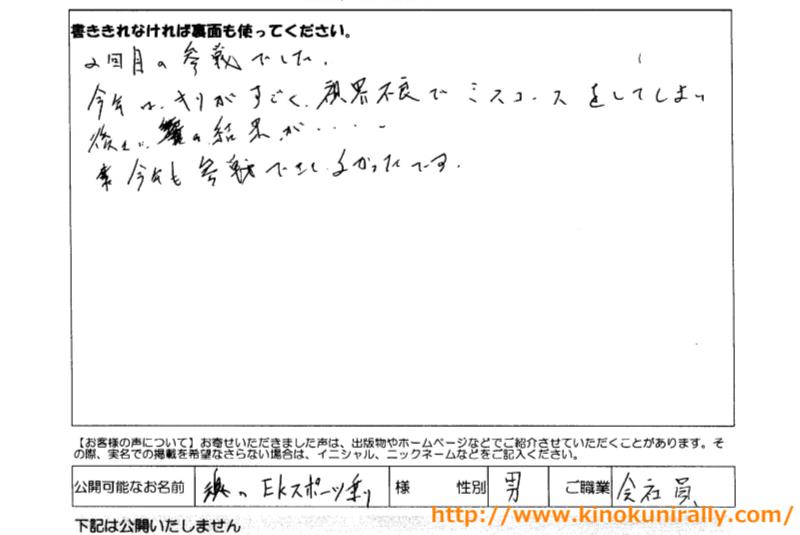 書ききれなければ裏面も使ってください。
2回目の参戦でした。
今年は、キリがすごく、視界不良でミスコースをしてしまい
の結果が・・・・
今年も参戦できてよかったです。
【お客様の声について】お寄せいただきました声は、出版物やホームページなどでご紹介させていただくことがあります。そ
の際、実名での掲載を希望なさらない場合は、イニシャル、ニックネームなどをご記入ください。
公開可能なお名前 の EKスポーツ乗り 様 性別 男 ご職業 会社員
http://www.kinokunirally.com/
下記は公開いたしません